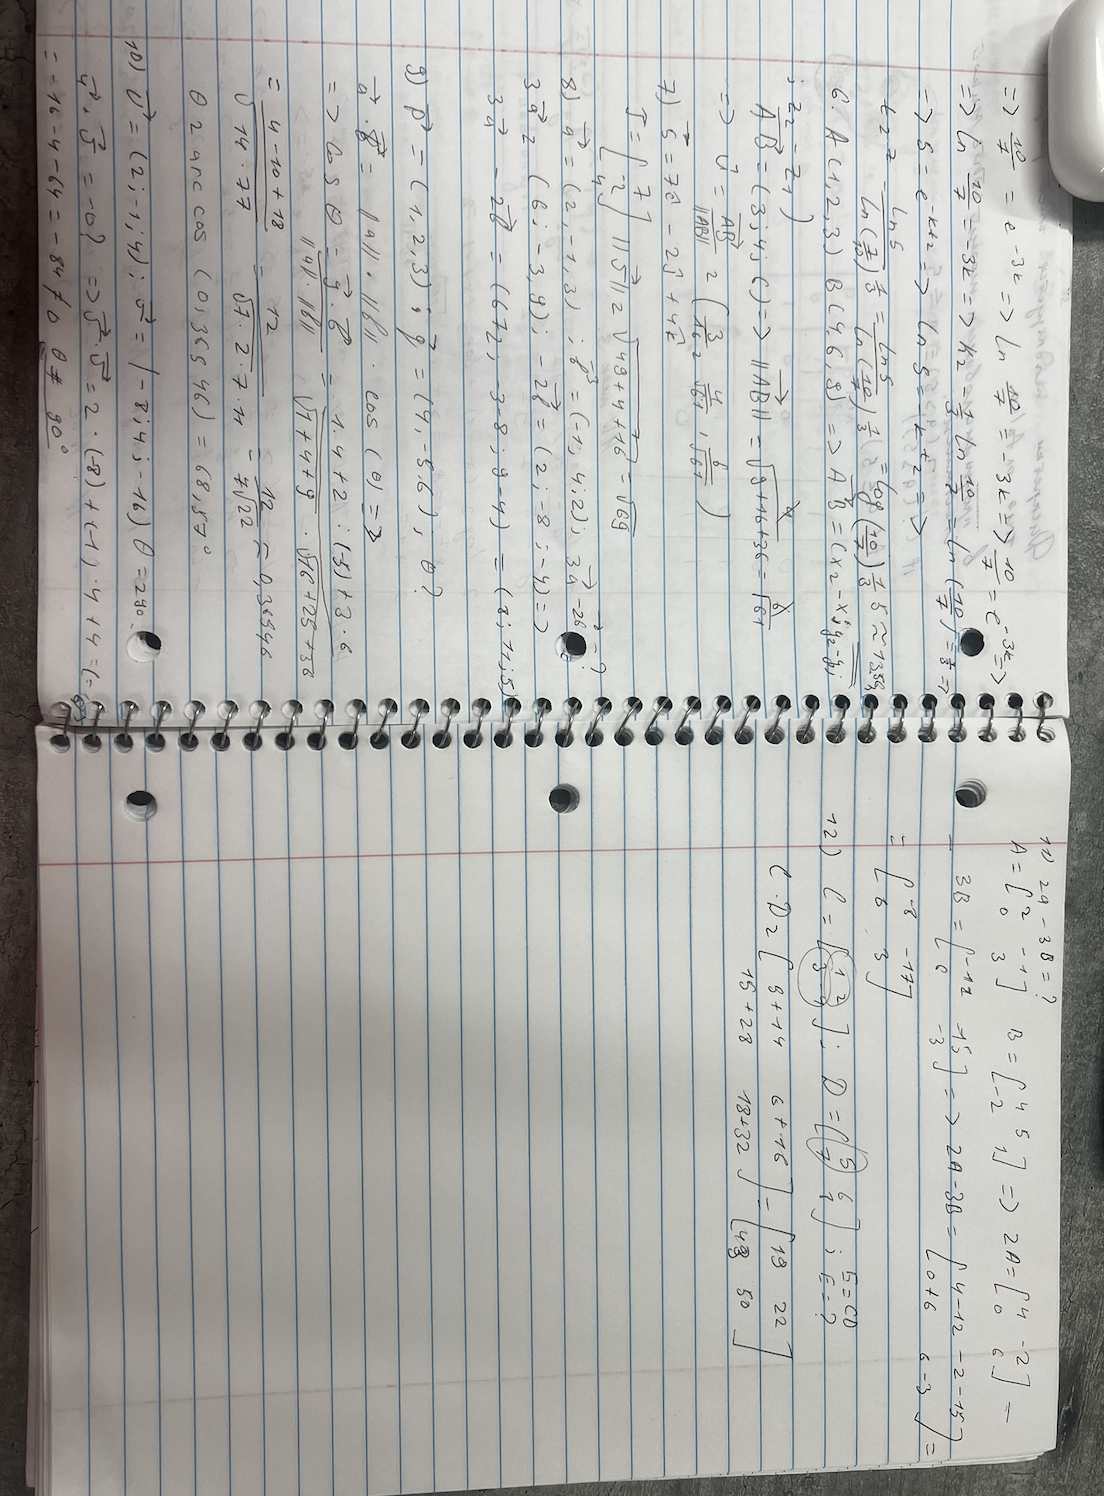 => 10/7 = e^-3k => ln 10/7 = -3k => 10/7 = e^-3k =>
=> ln 10/7 = -3k => k2 = -1/3 ln 10/7 = ln (10/7)^-1/3 =>
=> 5 = e^-k+2 => ln 5 = -k+2 =>
t2 = - ln5 / ln(10/7)^1/3 = ln5 / ln(10/7)^1/3 = log (10/7)^1/3 5 ≈ 13,53
6. A(1,2,3) B(4,6,9) => AB = (x2-x1; y2-y1;
; z2-z1)
AB = (3;4;6) => ||AB|| = √9+16+36 = √61
=> U = AB/||AB|| = (3/√61; 4/√61; 6/√61)
7) s = 7i - 2j + 4k
S = [7 -2 4] ||S|| = √49+4+16 = √69
8) a = (2,-1,3) ; b = (-1; 4; 2); 3a - 2b = ?
3a = (6; -3, 9); -2b = (2; -8; -4) =>
3a - 2b = (6+2; -3-8; 9-4) = (8; -11; 5)
9) p = (1,2,3); q = (4,-5,6); θ?
a·b = ||a||·||b||·cos(θ) =>
=> cos θ = a·b / ||a||·||b|| = 1·4+2·(-5)+3·6 / √1+4+9 · √16+25+36
= 4-10+18 / √14·77 = 12 / √7·2·7·11 = 12 / 7√22 ≈ 0,36546
θ = arccos (0,36546) = 68,57°
10) U = (2;-1;4); v = (-8;4;-16) θ = 90°
u·v = 0? => u·v = 2·(-8)+(-1)·4+4·(-16)
= -16-4-64 = -84 ≠ 0 θ ≠ 90°
11) 2A - 3B = ?
A = [2 -1 0 3] B = [4 5 -2 1] => 2A = [4 -2 0 6] -
- 3B = [-12 -15 6 -3] => 2A-3B = [4-12 -2-15 0+6 6-3] =
= [-8 -17 6 3]
12) C = [1 2 3 4]; D = [5 6 7 8]; E=CD E=?
C·D = [5+14 6+16 15+28 18+32] = [19 22 43 50]